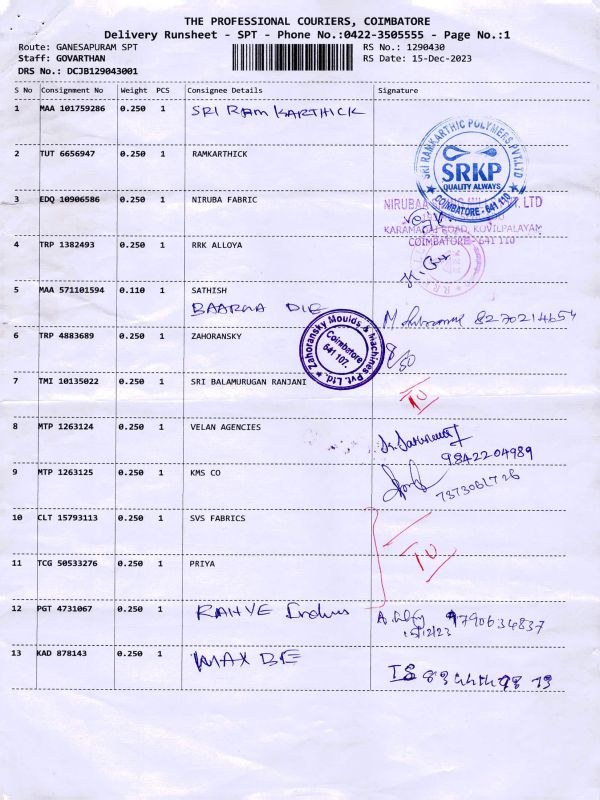 THE PROFESSIONAL COURIERS, COIMBATORE
Delivery Runsheet - SPT - Phone No.:0422-3505555 - Page No.:1
Route: GANESAPURAM SPT RS No.: 1290430
Staff: GOVARTHAN RS Date: 15-Dec-2023
DRS No.: DCJB129043001
S No Consignment No Weight PCS Consignee Details Signature
1 MAA 101759286 0.250 1 SRI RAM KARTHICK
SRI RAMKARTHIC POLYMERS PVT.LTD
SRKP
QUALITY ALWAYS
COIMBATORE - 641 110
2 TUT 6656947 0.250 1 RAMKARTHICK
3 EDQ 10906586 0.250 1 NIRUBA FABRIC
LTD
KARAMADAI ROAD, KOVILPALAYAM
COIMBATORE - 641 110
4 TRP 1382493 0.250 1 RRK ALLOYA
5 MAA 571101594 0.110 1 SATHISH
BAARGA DIE
8270214654
6 TRP 4883689 0.250 1 ZAHORANSKY
Zahoransky Moulds & Machines Pvt. Ltd.
Coimbatore
641 107.
7 TMI 10135022 0.250 1 SRI BALAMURUGAN RANJANI
8 MTP 1263124 0.250 1 VELAN AGENCIES
9842204989
9 MTP 1263125 0.250 1 KMS CO
7373061726
10 CLT 15793113 0.250 1 SVS FABRICS
11 TCG 50533276 0.250 1 PRIYA
12 PGT 4731067 0.250 1
9790634837
15/12/23
13 KAD 878143 0.250 1